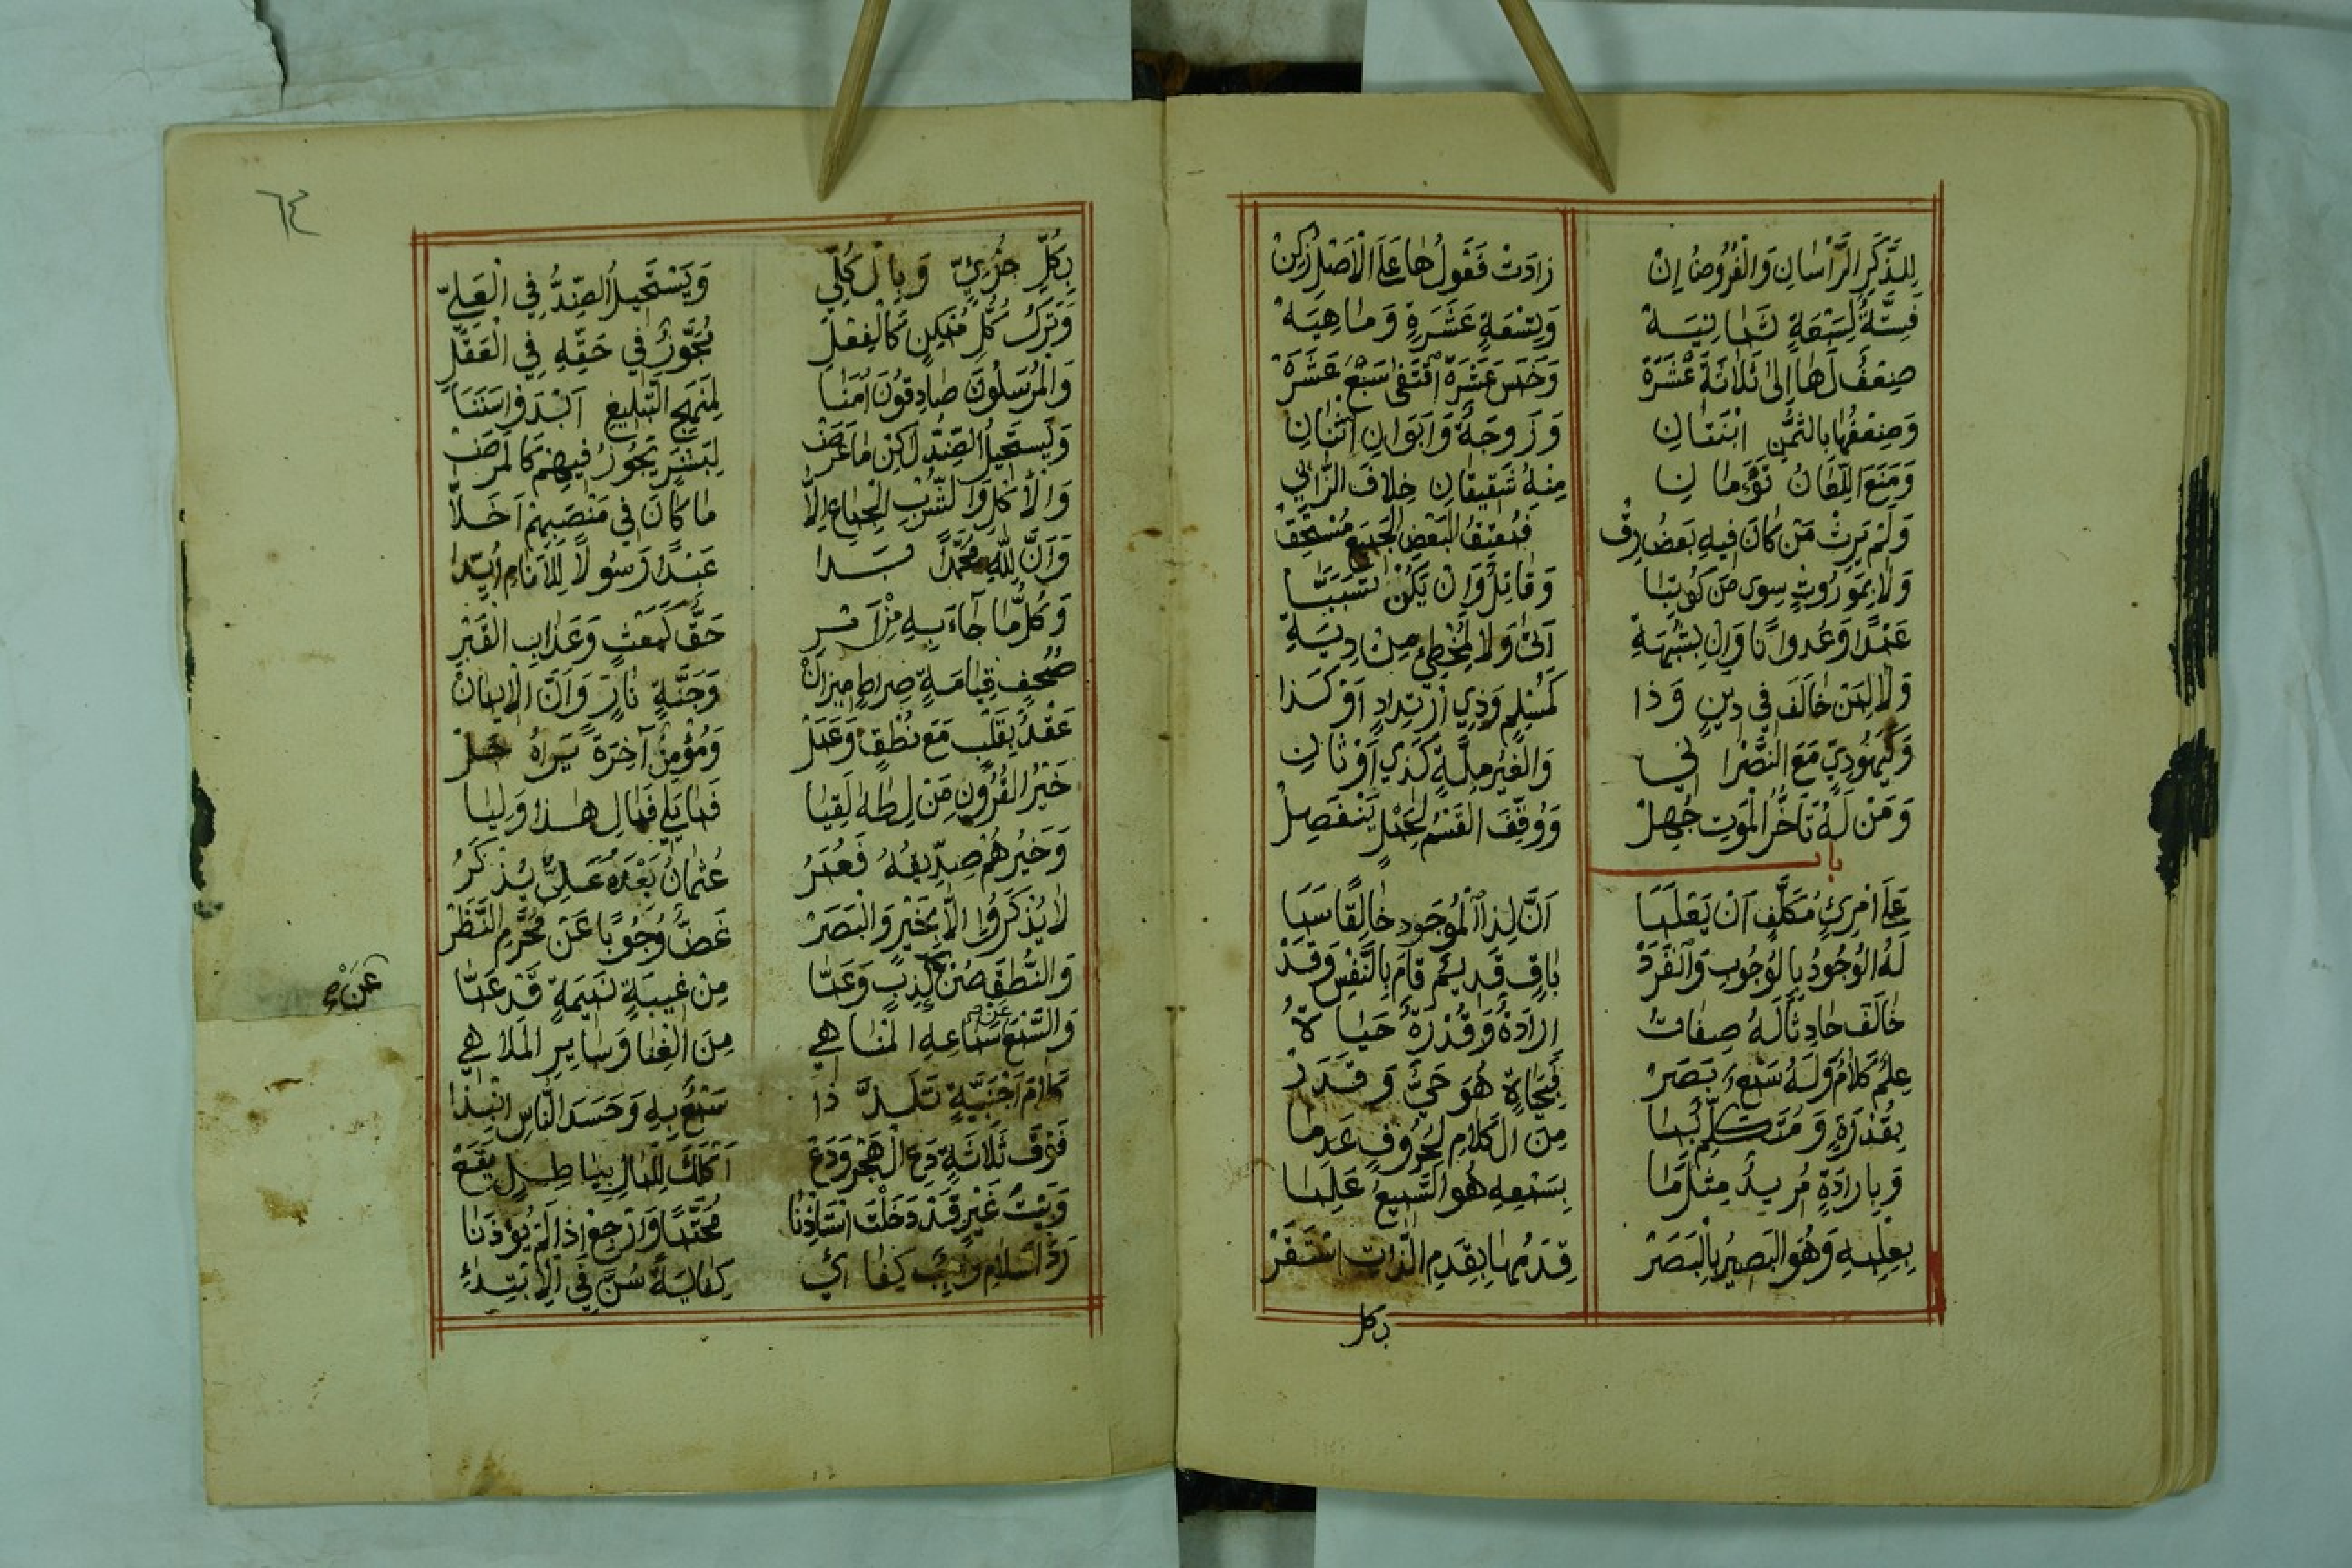 لِلذَّكَرِ الرَّأْسَانِ وَالْفُرُوضُ إِنْ زَادَتْ فَعَوْلُهَا عَلَى الْأَصْلِ زُكِنْ
فَسِتَّةٌ لِتِسْعَةٍ ثَمَانِيَهْ وَتِسْعَةٍ عَشَرَةٍ وَمَاهِيَهْ
ضِعْفٌ لَهَا إِلَى ثَلَاثَةَ عَشَرَهْ وَخَمْسَ عَشْرَةَ اقْتَفَى سَبْعَ عَشَرَهْ
وَضِعْفُهَا بِالثُّمْنِ ابْنَتَانِ وَزَوْجَةٌ وَأَبَوَانِ اثْنَانِ
وَمَنَعَ اللِّعَانُ تَوْءَمَانِ مِنْهُ شَقِيقَانِ خِلَافَ الزَّانِي
وَلَمْ يَرِثْ مَنْ كَانَ فِيهِ بَعْضُ رِقّْ فَمُعْتِقُ الْبَعْضِ الْجَمِيعَ مُسْتَحِقّْ
وَلَا بِمَوْرُوثٍ سِوَى مَنْ كُوتِبَا وَقَاتِلٌ وَإِنْ يَكُنْ تَسَبَّبَا
عَمْدًا وَعُدْوَانًا وَإِنْ بِشُبْهَةِ أَتَى وَلَا مُخْطِئٌ مِنْ دِيَةِ
وَلَا لِمَنْ خَالَفَ فِي دِينٍ وَذَا كَمُسْلِمٍ وَذِي ارْتِدَادٍ أَوْ كَذَا
وَكَيَهُودِيٍّ مَعَ النَّصْرَانِي وَالْغَيْرُ مِلَّةٌ كَذِي أَوْثَانِ
وَمَنْ لَهُ تَأَخُّرُ الْمَوْتِ جُهِلْ وَوُقِفَ الْقَسْمُ لِحَمْلٍ يَنْفَصِلْ
باب
عَلَى امْرِئٍ مُكَلَّفٍ أَنْ يَعْلَمَا أَنَّ لِذَا الْمَوْجُودِ خَالِقًا سَمَا
لَهُ الْوُجُودُ بِالْوُجُوبِ وَانْفَرَدْ بَاقٍ قَدِيمٌ قَامَ بِالنَّفْسِ وَقَدْ
خَالَفَ حَادِثًا لَهُ صِفَاتُ إِرَادَةٌ وَقُدْرَةٌ حَيَاةُ
عِلْمٌ كَلَامٌ وَلَهُ سَمْعٌ بَصَرْ فَبِحَيَاةٍ هُوَ حَيٌّ وَقَدَرْ
بِقُدْرَةٍ وَمُتَكَلِّمٌ بِمَا مِنَ الْكَلَامِ لِحُرُوفٍ عَدِمَا
وَبِإِرَادَةٍ مُرِيدٌ مِثْلَمَا بِسَمْعِهِ هُوَ السَّمِيعُ عَلِمَا
بِعِلْمِهِ وَهُوَ الْبَصِيرُ بِالْبَصَرْ قِدَمُهَا بِقِدَمِ الذَّاتِ اسْتَقَرْ
بكل
٦٤
بِكُلِّ جُزْئِيٍّ وَبِالْكُلِّيِّ وَيَسْتَحِيلُ الضِّدُّ فِي الْعَلِيِّ
وَتَرْكُ كُلِّ مُمْكِنٍ كَالْفِعْلِ يُجَوَّزُ فِي حَقِّهِ فِي الْعَقْلِ
وَالْمُرْسَلُونَ صَادِقُونَ أُمَنَا لِمَنْهَجِ التَّبْلِيغِ أَبْدَوْا سَنَنَا
وَيَسْتَحِيلُ الضِّدُّ لَكِنْ مَا عَرَضْ لِبَشَرٍ يَجُوزُ فِيهِمْ كَالْمَرَضْ
وَالْأَكْلِ وَالشُّرْبِ الْجِمَاعِ إِلَّا مَا كَانَ فِي مَنْصَبِهِمْ أَخَلَّا
وَأَنَّ لِلَّهِ مُحَمَّدًا بَدَا عَبْدًا رَسُولًا لِلْأَنَامِ أُيِّدَا
وَكُلُّ مَا جَاءَ بِهِ مِنْ أَمْرِ حَقٌّ كَبَعْثٍ وَعَذَابِ الْقَبْرِ
صُحْفٍ قِيَامَةٍ صِرَاطٍ مِيزَانْ وَجَنَّةٍ نَارٍ وَأَنَّ الْإِيمَانْ
عَقْدٌ بِقَلْبٍ مَعَ نُطْقٍ وَعَمَلْ وَمُؤْمِنٌ آخِرَةً يَرَاهُ جَلّْ
خَيْرُ الْقُرُونِ مَنْ لِطَهَ لَقِيَا فَمَا يَلِي فَتَالِ هَذَا وَلِيَا
وَخَيْرُهُمْ صِدِّيقُهُ فَعُمَرُ عُثْمَانُ بَعْدَهُ عَلِيٌّ يُذْكَرُ
لَا يُذْكَرُوا إِلَّا بِخَيْرٍ وَالْبَصَرْ غَضَّ وُجُوبًا عَنْ مُحَرَّمِ النَّظَرْ
وَالنُّطْقَ صُنْ عَنْ كَذِبٍ وَعَمَّا مِنْ غِيبَةٍ نَمِيمَةٍ قَدْ عَمَّا
عَنْ صح
وَالسَّمْعَ عَنْ سَمَاعِهِ الْمَنَاهِي مِنَ الْغِنَا وَسَايِرِ الْمَلَاهِي
كَلَامَ أَجْنَبِيَّةٍ تَلَذَّذَا سَمْعٌ بِهِ وَحَسَدَ النَّاسِ انْبُذَا
فَوْقَ ثَلَاثَةٍ دَعِ الْهَجْرَ وَدَعْ أَكْلَكَ لِلْمَالِ بِبَاطِلٍ يَقَعْ
وَبَيْتَ غَيْرٍ قَدْ دَخَلْتَ اسْتَأْذِنَا مُحَتَّمًا وَارْجِعْ إِذَا لَمْ يُؤْذَنَا
رَدُّ السَّلَامِ وَاجِبٌ كِفَائِي كِفَايَةً سُنَّ فِي الِابْتِدَاءِ